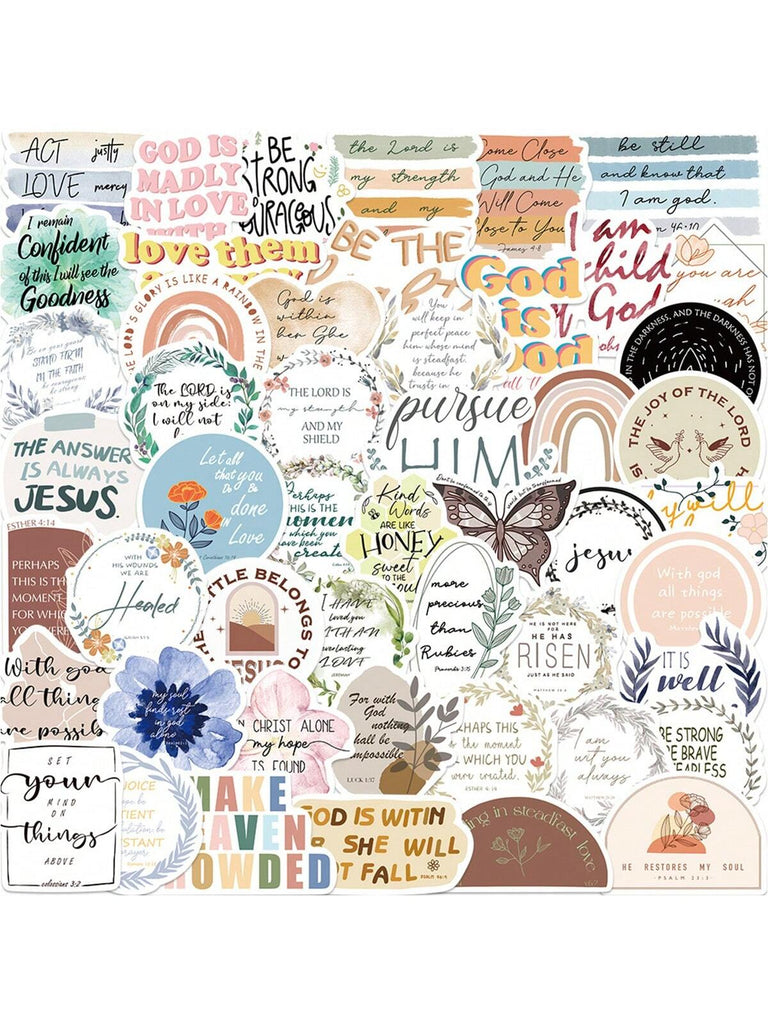 ACT justly
LOVE mercy
GOD IS
MADLY
IN LOVE
WITH
BE
STRONG
the Lord is
my strength
and my
Come Close
God and He
Will Come
Close to You
James 4:8
be still
and know that
I am god.
46:10
I remain
Confident
of this I will see the
Goodness
love them
BE THE
God
is
I am
child
God
you are
THE LORD'S GLORY IS LIKE A RAINBOW IN THE
God is
within
her She
You
will keep in
perfect peace
him whose mind
is steadfast
because he
trusts in
IN THE DARKNESS, AND THE DARKNESS HAS NOT
Be on your guard
STAND FIRM
IN THE FAITH
be courageous
be strong
The LORD is
on my side;
I will not
THE LORD IS
my strength
AND MY
SHIELD
pursue
HIM
THE JOY OF THE LORD
IS
THE ANSWER
IS ALWAYS
JESUS.
Let all
that you
Do Be
done
in Love
Perhaps
THIS IS THE
moment
which you
have been
create
Kind
Words
ARE LIKE
HONEY
sweet
TO THE
soul
jesus
will
ESTHER 4:14
PERHAPS
THIS IS THE
MOMENT
FOR WHICH
WITH
HIS WOUNDS
WE ARE
Healed
BELONGS TO
JESUS
I HAVE
loved you
WITH AN
everlasting
LOVE
JEREMIAH
more
precious
than
Rubies
Proverbs 3:15
HE IS NOT HERE
FOR
HE HAS
RISEN
JUST AS HE SAID
With god
all things
are possible
With god
all things
are possib
my soul
finds rest
in god
alone
CHRIST ALONE
my hope
IS FOUND
For with
God
nothing
shall be
impossible
LUKE 1:37
PERHAPS THIS
is the moment
FOR WHICH YOU
were created.
ESTHER 4:14
I am
with you
always
IT IS
well
BE STRONG
BE BRAVE
FEARLESS
SET
your
MIND
ON
things
ABOVE
colossians 3:2
MAKE
HEAVEN
CROWDED
GOD IS WITIN
SHE WILL
FALL
PSALM 46:5
in steadfast love
HE RESTORES MY SOUL
-PSALM 23:3-